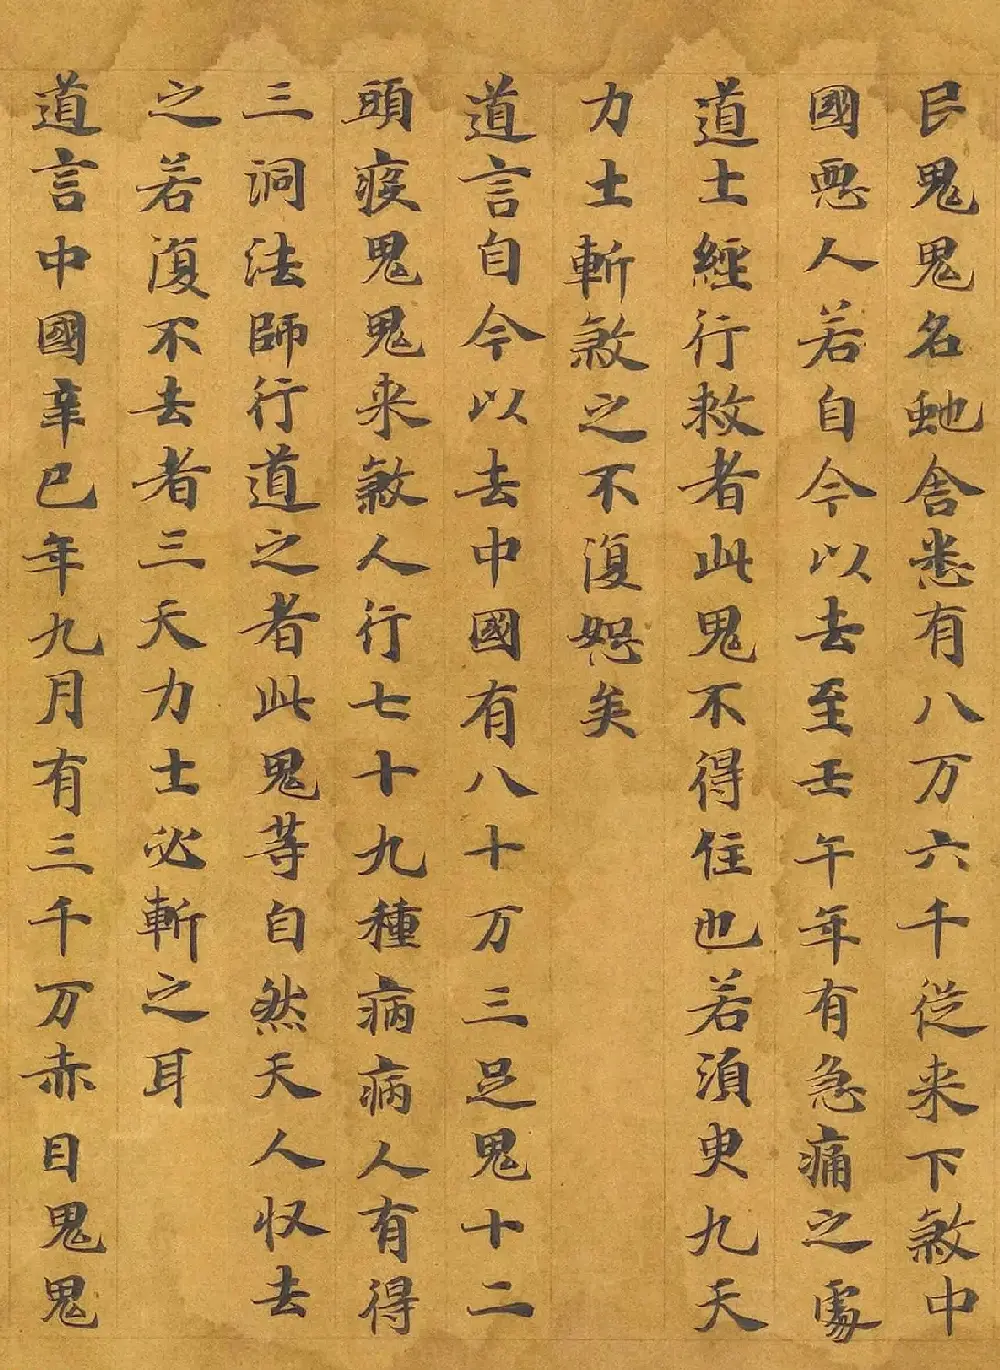 民鬼鬼名虵舍悉有八万六千従来下煞中
國惡人若自今以去至壬午年有急痛之處
道士經行救者此鬼不得住也若湏臾九天
力士斬煞之不復恕矣
道言自今以去中國有八十万三足鬼十二
頭疫鬼鬼来煞人行七十九種病病人有得
三洞法師行道之者此鬼等自然天人収去
之若復不去者三天力士必斬之耳
道言中國辛巳年九月有三千万赤目鬼鬼